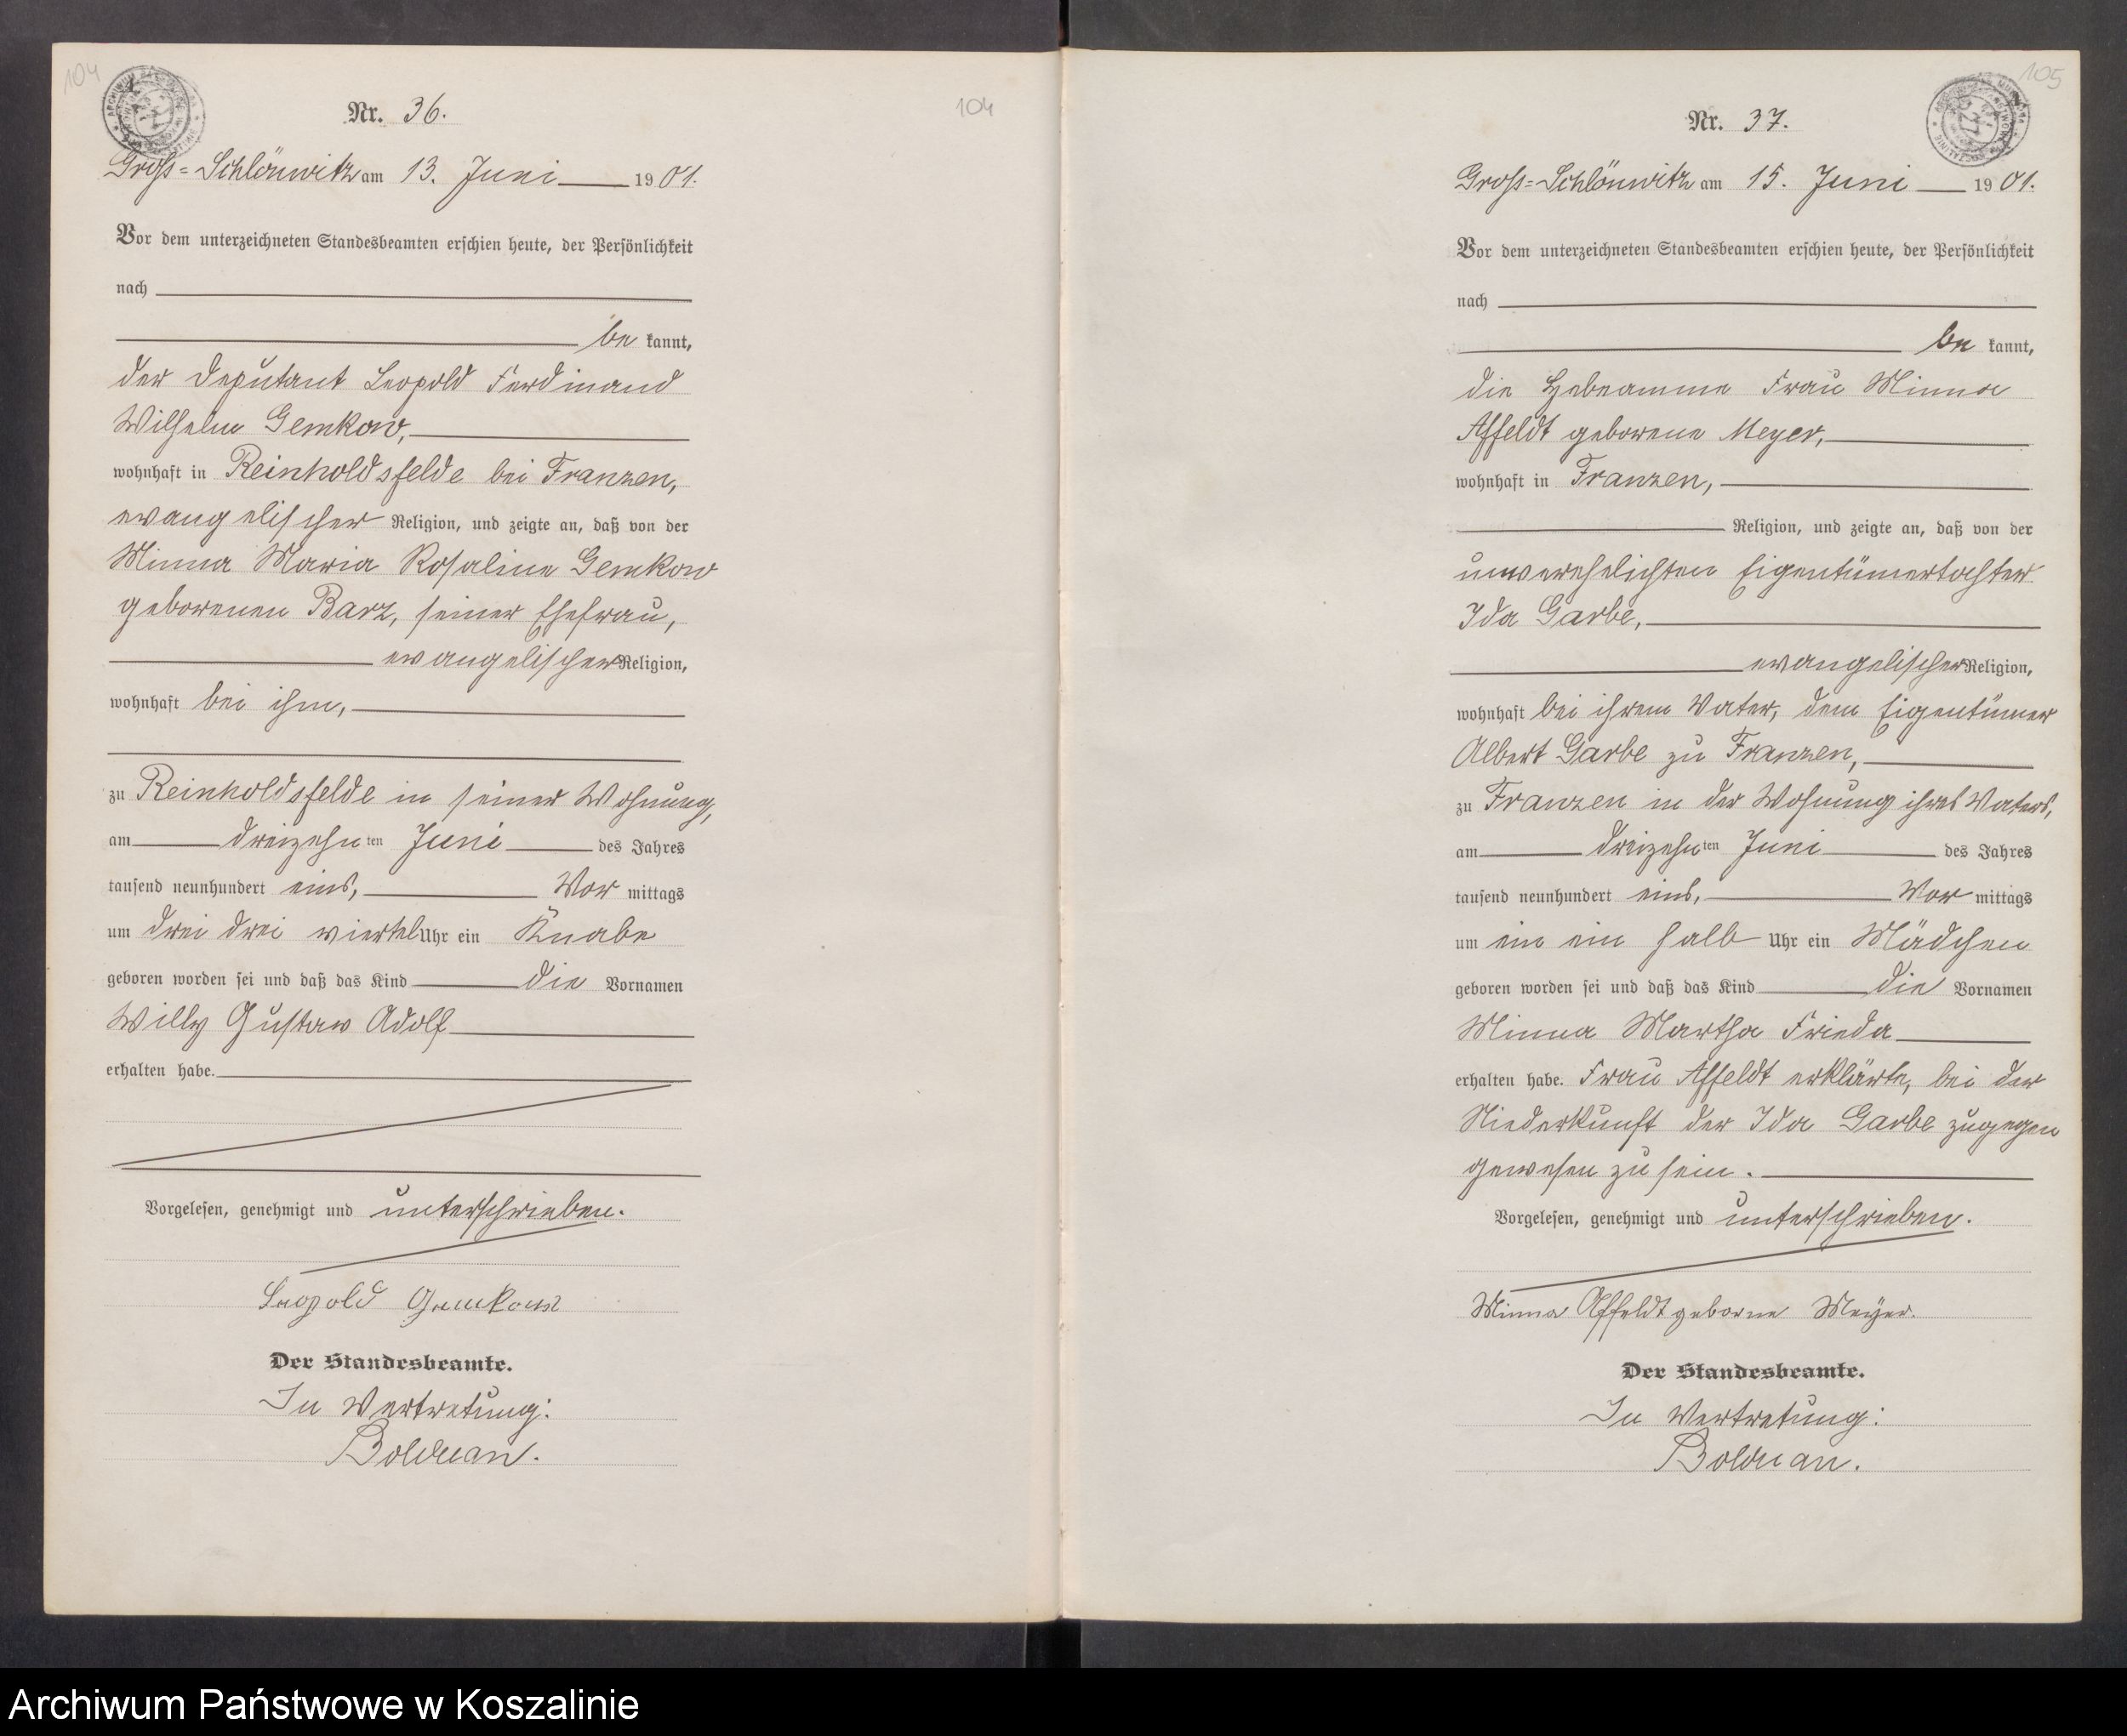 104
Nr. 36.
Gross=Schlönwitz am 13. Juni 1901.
Vor dem unterzeichneten Standesbeamten erschien heute, der Persönlichkeit
nach
be kannt,
der Deputant Leopold Ferdinand
Wilhelm Gemkow,
wohnhaft in Reinholdsfelde bei Franzen,
evangelischer Religion, und zeigte an, daß von der
Minna Maria Rosaline Gemkow
geborenen Barz, seiner Ehefrau,
evangelischer Religion,
wohnhaft bei ihm,
zu Reinholdsfelde in seiner Wohnung,
am dreizehn ten Juni des Jahres
tausend neunhundert eins, Vor mittags
um drei drei viertel Uhr ein Knabe
geboren worden sei und daß das Kind die Vornamen
Willy Gustav Adolf
erhalten habe.
Vorgelesen, genehmigt und unterschrieben.
Leopold Gemkow
Der Standesbeamte.
In Vertretung:
Bolduan.
104
105
Nr. 37.
Gross=Schlönwitz am 15. Juni 1901.
Vor dem unterzeichneten Standesbeamten erschien heute, der Persönlichkeit
nach
be kannt,
die Hebeamme Frau Minna
Affeldt geborene Meyer,
wohnhaft in Franzen,
Religion, und zeigte an, daß von der
unverehelichten Eigentümertochter
Ida Garbe,
evangelischer Religion,
wohnhaft bei ihrem Vater, dem Eigentümer
Albert Garbe zu Franzen,
zu Franzen in der Wohnung ihres Vaters,
am dreizehn ten Juni des Jahres
tausend neunhundert eins, Vor mittags
um ein ein halb Uhr ein Mädchen
geboren worden sei und daß das Kind die Vornamen
Minna Martha Frieda
erhalten habe. Frau Affeldt erklärte, bei der
Niederkunft der Ida Garbe zugegen
gewesen zu sein.
Vorgelesen, genehmigt und unterschrieben.
Minna Affeldt geborne Meÿer.
Der Standesbeamte.
In Vertretung:
Bolduan.
Archiwum Państwowe w Koszalinie